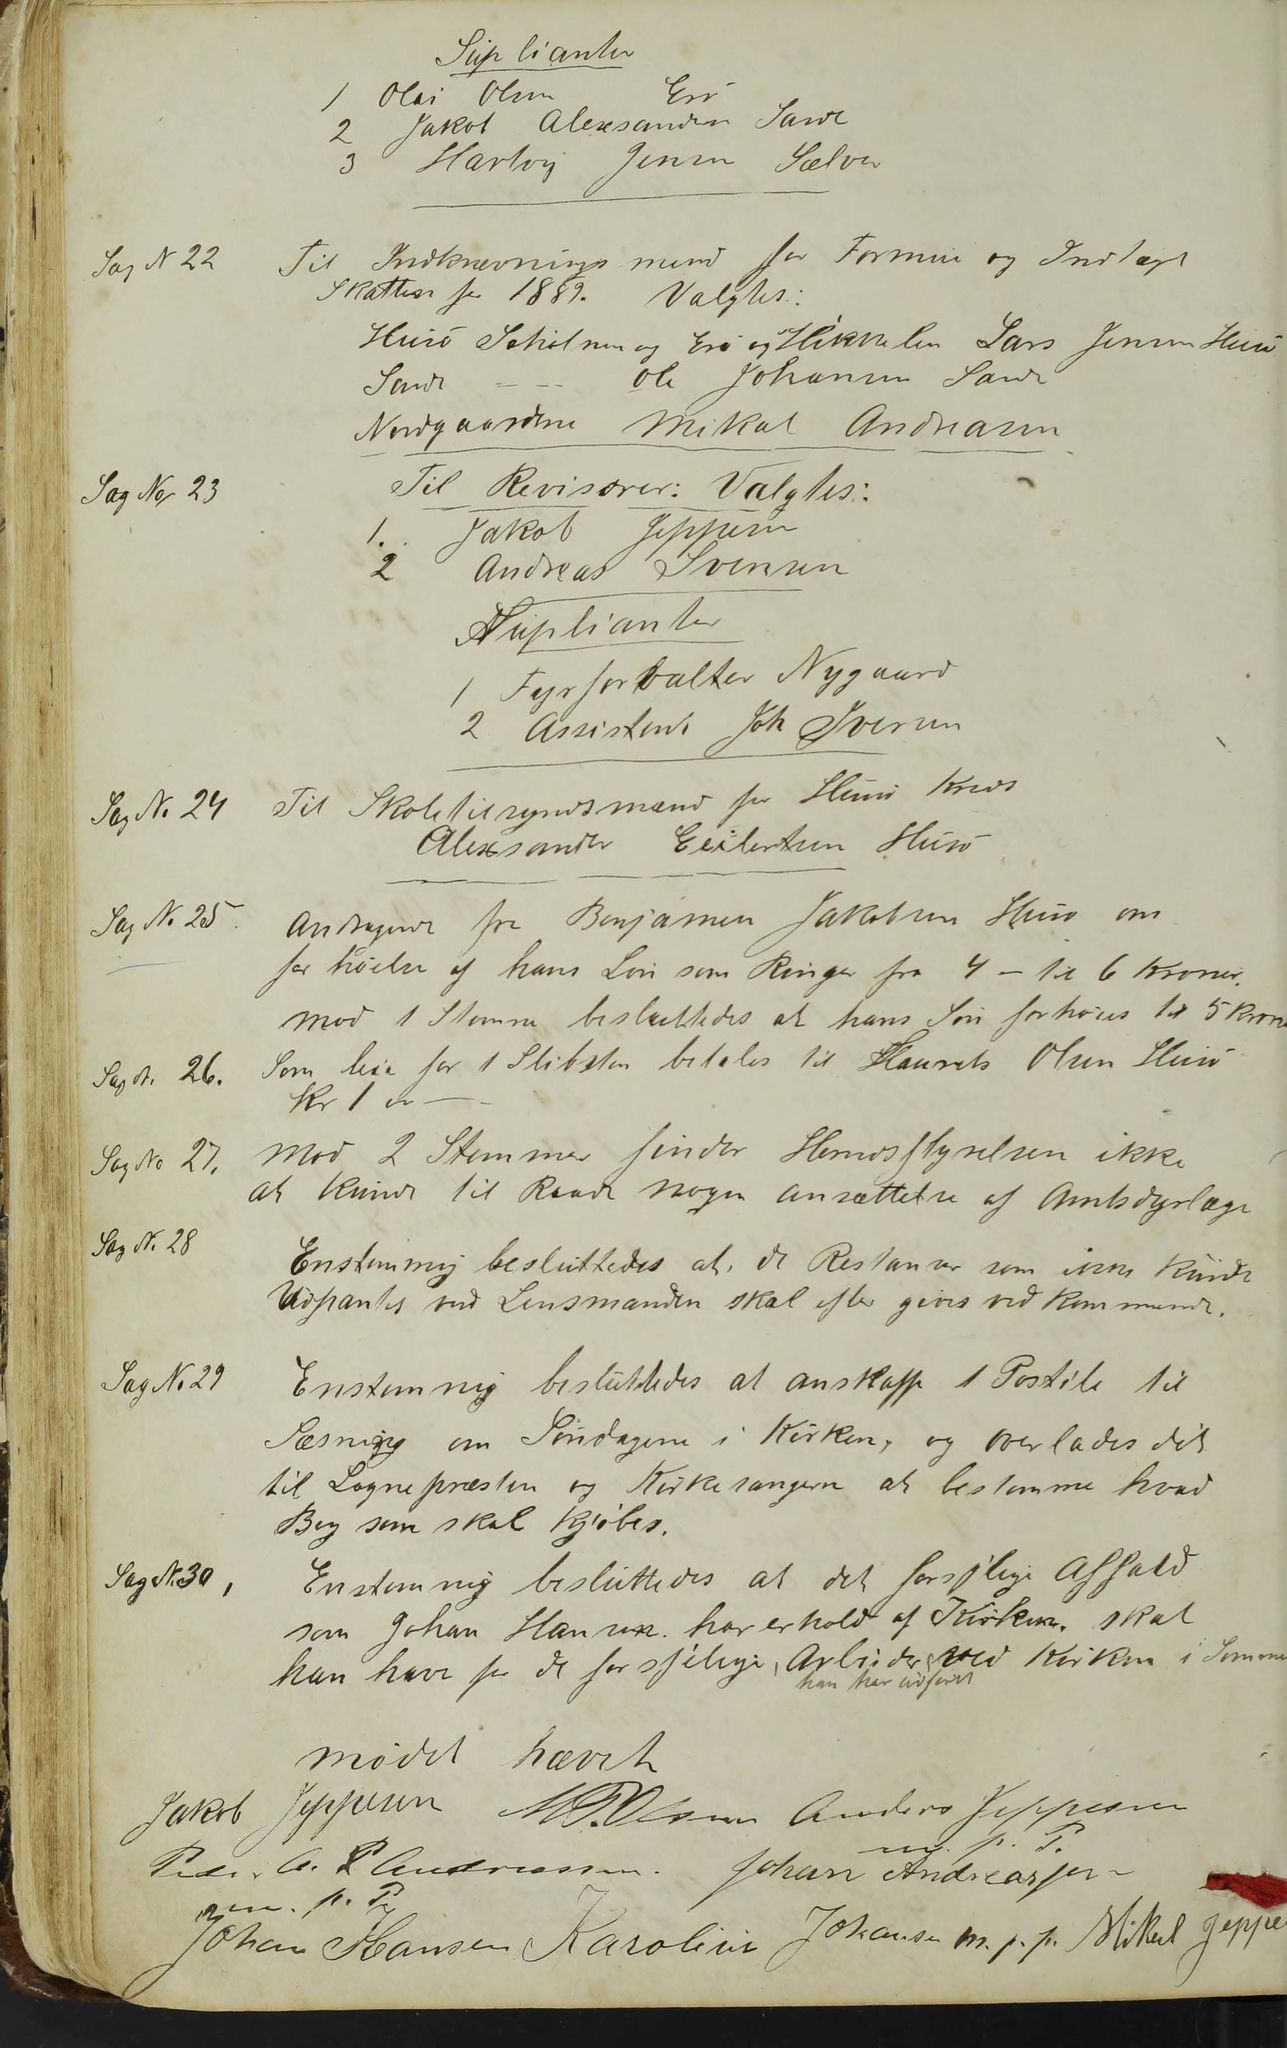 Suplianter
1 Olai Olsen Erö
2 Jakob Alexsandersen Sande
3 Hartvig Jensen Sælvær
Sag N 22 Til Indkrævningsmend for Formue og Indtægt
Skatten for 1889. Valgtes:
Husö Scholmen og Erö og Hikkelen Lars Jensen Husö
Sande - - - Ole Johansen Sande
Nordgaardene Mikal Andreasen
Sag No 23 Til Revisorer: Valgtes:
1. Jakob Jeppesen
2 Andreas Svensen
Suplianter
1 Fyrforvalter Nygaard
2 Assistent Joh Iversen
Sag N. 24 Til Skoletilsynsmand for Husö Kreds
Alexsander Eilertsen Husö
Sag N. 25. Andragende fra Benjamen Jakobsen Husö om
forhöielse af hans Lön som Ringer fra 4 - til 6 Kroner.
mod 1 Stemme besluttedes at hans Lön forhöies til 5 Kroner
Sag N. 26. Som leie for 1 Slibsten betales til Haurets Olsen Husö
Kr 1 -
Sag No 27. Mod 2 Stemmer finder Herredsstyrelsen ikke
at kunde til Raade nogen ansættelse af Amtsdyrlæge
Sag N. 28 Enstemmig besluttedes at. de Restanser som ikke kunde
Udpantes ved Lensmanden skal efter gives vedkommende.
Sag No 29 Enstemmig besluttedes at anskaffe 1 Postile til
Læsning om Söndagene i Kirken, og overlades det
til Sognepræsten og Kirkesangeren at bestemme hvad
Bog som skal kjöbes.
Sag N. 30, Enstemmig besluttedes at det forsjelige Affald
som Johan Hansen. har erholdt af Kirken. skal
han have for de forsjelige Arbeider ved Kirken i Sommer
han har udfört
mödet hævet
Jakob Jeppesen Olsen Anders Jeppesen
m. p. P.
Peder A. P Andreassen. Johan Andreassen
m. p. P.
Johan Hansen Karolius Johansen m. p. p. Mikal Jeppe